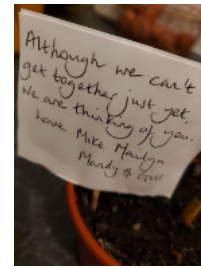 Although we can't
get together just yet,
we are thinking of you.
Love Mike Marilyn
Mandy &